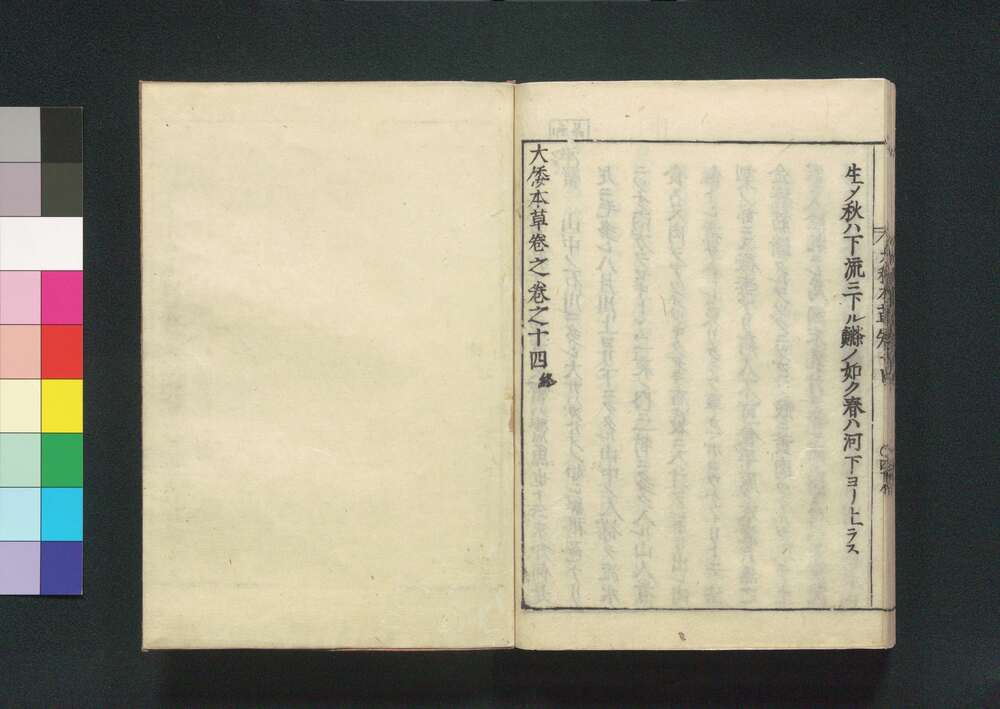 生メ秋ハ下流ニ下ル鰷ノ如ク春ハ河下ヨリ上ラス
大倭本草卷之卷之十四終